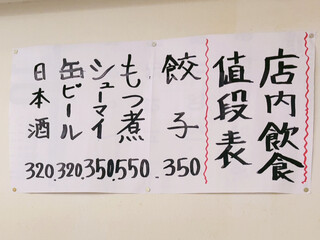 店内飲食
値段表
餃子 350
もつ煮 550
シューマイ 350
缶ビール 320
日本酒 320